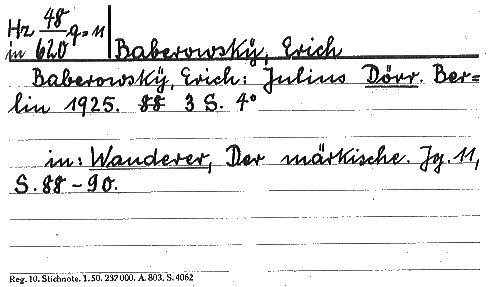 Hz 48 q=11
in 620 Baberowský, Erich
Baberowský, Erich: Julius Dörr. Ber=
lin 1925. 88 3 S. 4°
in: Wanderer, Der märkische. Jg. 11,
S. 88-90.
Reg. 10. Stichnote. 1. 50. 237 000. A. 803. S. 4062